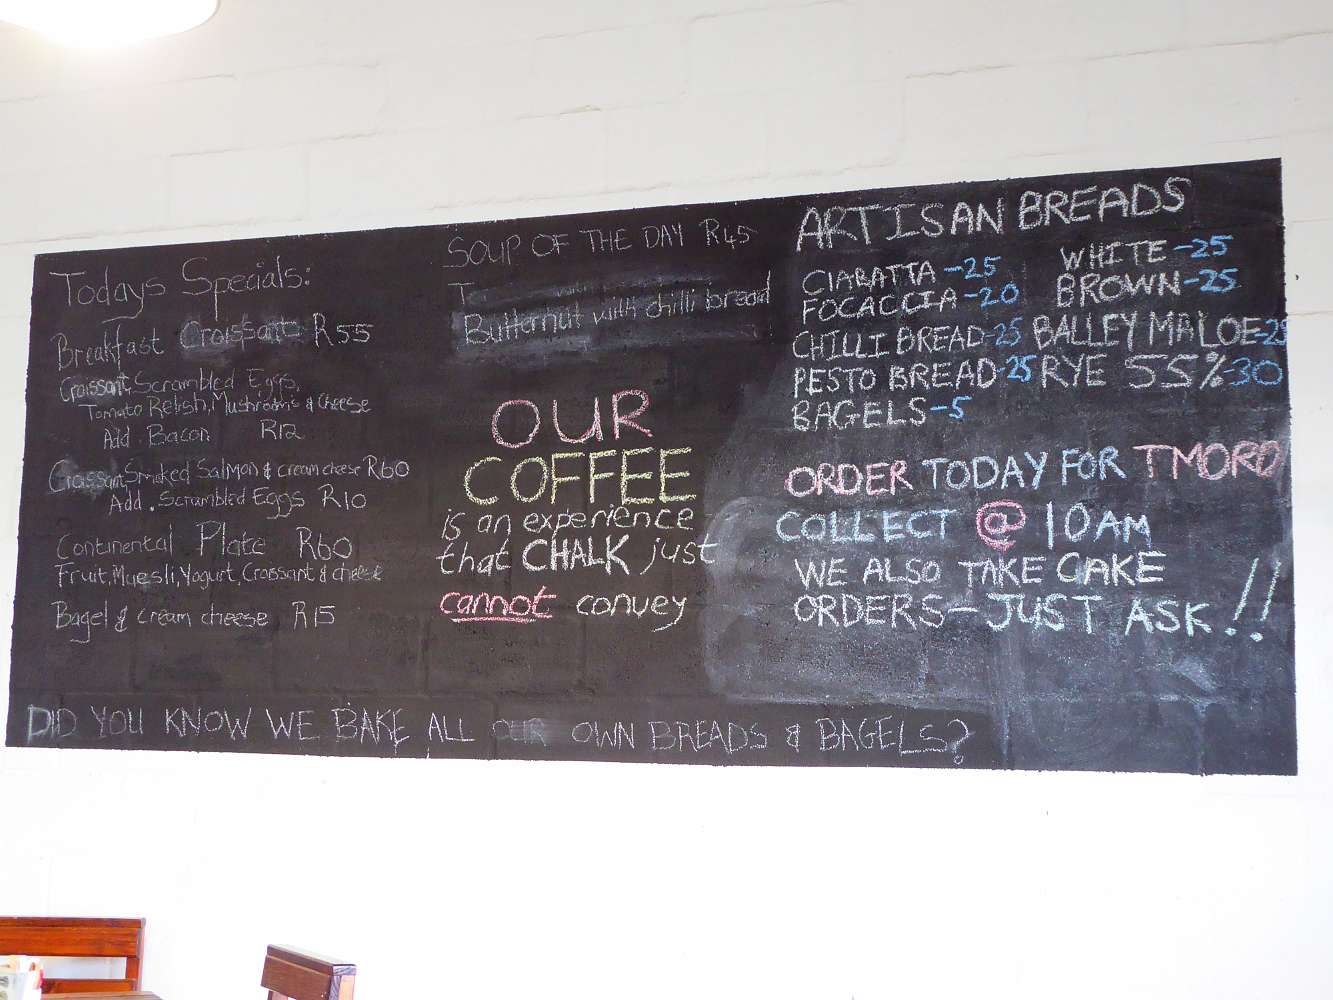 Todays Specials:
Breakfast Croissant R55
Croissant, Scrambled Eggs,
Tomato Relish, Mushrooms & Cheese
Add. Bacon R12
Croissant Smoked Salmon & cream cheese R60
Add. Scrambled Eggs R10
Continental Plate R60
Fruit, Muesli, Yogurt, Croissant & cheese
Bagel & cream cheese R15
SOUP OF THE DAY R45
Butternut with chilli bread
OUR
COFFEE
is an experience
that CHALK just
cannot convey
ARTISAN BREADS
CIABATTA -25
FOCACCIA -20
CHILLI BREAD -25
PESTO BREAD -25
BAGELS -5
WHITE -25
BROWN -25
BALLEY MALOE -25
RYE 55% -30
ORDER TODAY FOR TMORO
COLLECT @ 10AM
WE ALSO TAKE CAKE
ORDERS - JUST ASK!!
DID YOU KNOW WE BAKE ALL OUR OWN BREADS & BAGELS?